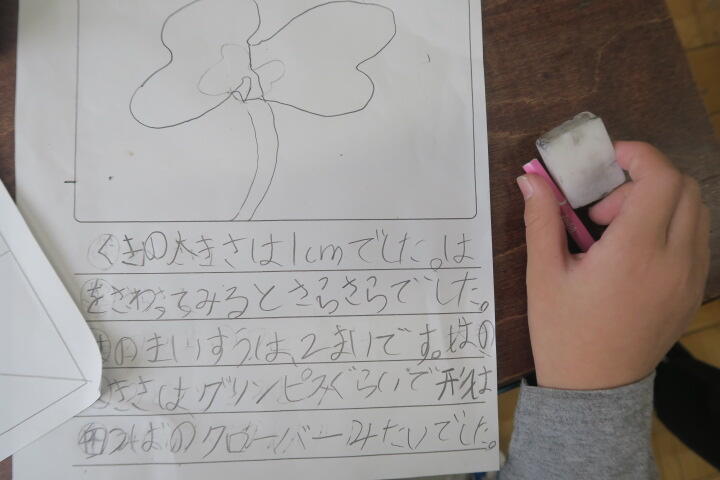 くきの大きさは1cmでした。は
をさわってみるとさらさらでした。
のまいすうは、2まいです。はの
きさはグリンピスぐらいで形は
つばのクローバーみたいでした。